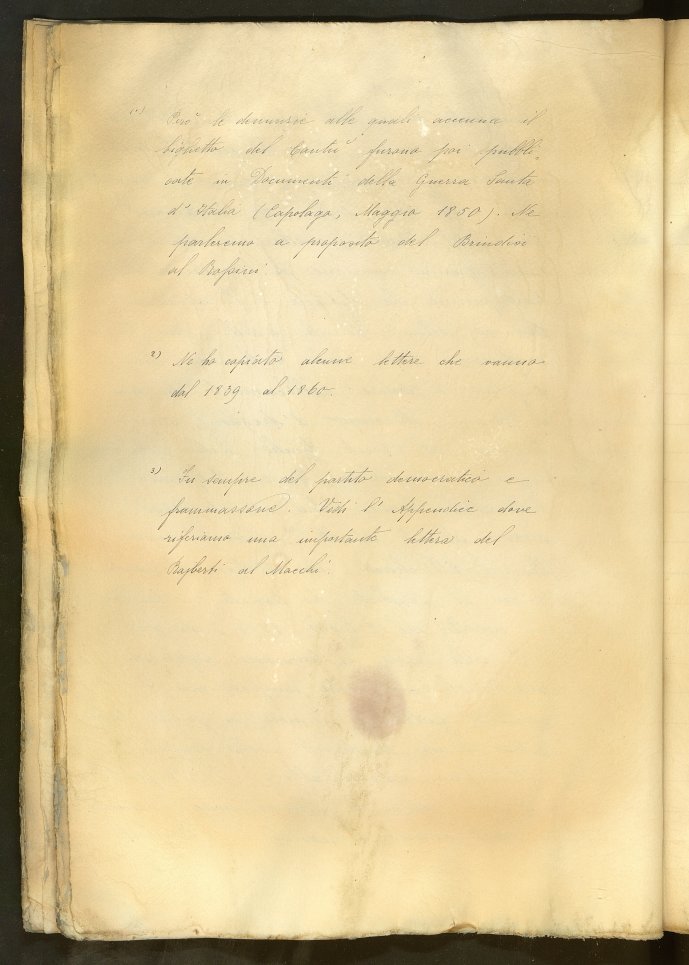 (1) Però le denunzie alle quali accenna il
biglietto del Cantù furono poi pubbli-
cate in Documenti della Guerra Santa
d'Italia (Capolago, Maggio 1850). Ne
parleremo a proposito del Brindisi
al Rossini.
2) Ne ho copiato alcune lettere che vanno
dal 1839 al 1860.
3) Fu sempre del partito democratico e
frammassone. Vedi l'Appendice dove
riferiamo una importante lettera del
Rajberti al Macchi.